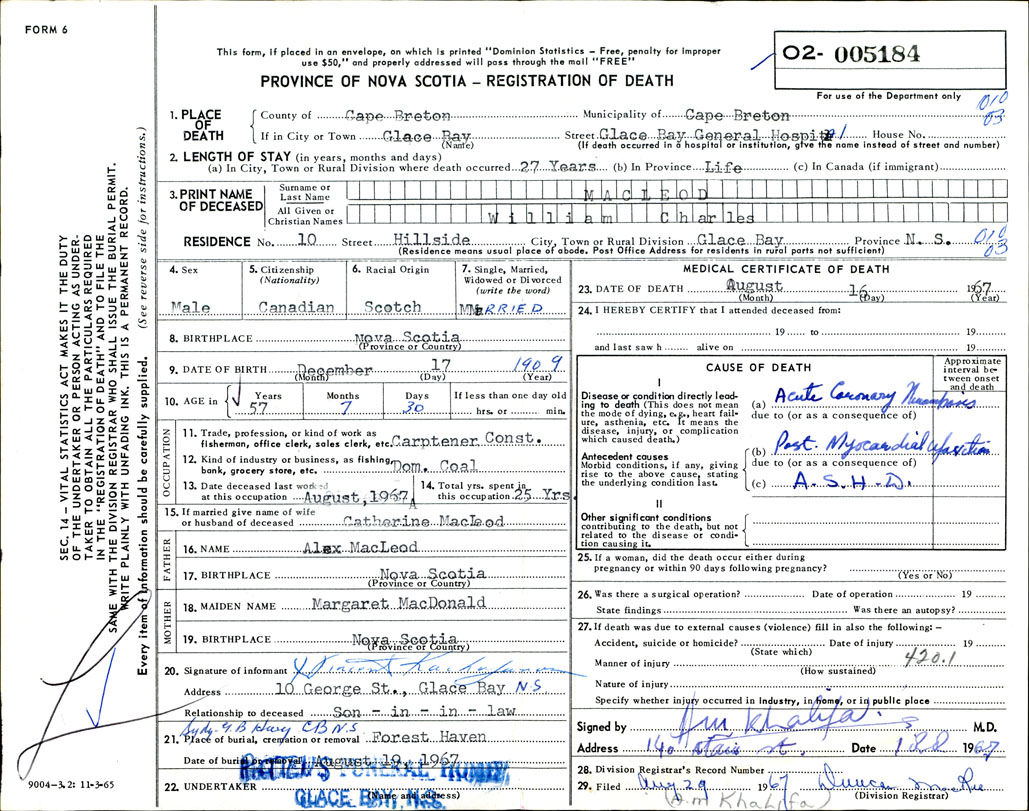 FORM 6
This form, if placed in an envelope, on which is printed "Dominion Statistics – Free, penalty for improper
use $50," and properly addressed will pass through the mail "FREE"
PROVINCE OF NOVA SCOTIA – REGISTRATION OF DEATH
O2- 005184
For use of the Department only
010
03
SEC. 14 – VITAL STATISTICS ACT MAKES IT THE DUTY
OF THE UNDERTAKER OR PERSON ACTING AS UNDER-
TAKER TO OBTAIN ALL THE PARTICULARS REQUIRED
IN THE "REGISTRATION OF DEATH" AND TO FILE THE
SAME WITH THE DIVISION REGISTRAR WHO SHALL ISSUE THE BURIAL PERMIT.
WRITE PLAINLY WITH UNFADING INK. THIS IS A PERMANENT RECORD.
Every item of information should be carefully supplied. (See reverse side for instructions.)
1. PLACE OF DEATH
County of Cape Breton Municipality of Cape Breton
If in City or Town Glace Bay Street Glace Bay General Hospital House No.
(Name) (If death occurred in a hospital or institution, give the name instead of street and number)
2. LENGTH OF STAY (in years, months and days)
(a) In City, Town or Rural Division where death occurred 27 Years (b) In Province Life (c) In Canada (if immigrant)
3. PRINT NAME OF DECEASED
Surname or Last Name MACLEOD
All Given or Christian Names William Charles
RESIDENCE No. 10 Street Hillside City, Town or Rural Division Glace Bay Province N. S. 010
03
(Residence means usual place of abode. Post Office Address for residents in rural parts not sufficient)
4. Sex
Male
5. Citizenship
(Nationality)
Canadian
6. Racial Origin
Scotch
7. Single, Married,
Widowed or Divorced
(write the word)
MARRIED
8. BIRTHPLACE Nova Scotia
(Province or Country)
9. DATE OF BIRTH December 17 1909
(Month) (Day) (Year)
10. AGE in
Years Months Days If less than one day old
57 7 30 hrs. or min.
OCCUPATION
11. Trade, profession, or kind of work as
fisherman, office clerk, sales clerk, etc. Carptener Const.
12. Kind of industry or business, as fishing,
bank, grocery store, etc. Dom. Coal
13. Date deceased last worked
at this occupation August, 1967
14. Total yrs. spent in
this occupation 25 Yrs
15. If married give name of wife
or husband of deceased Catherine MacLeod
FATHER
16. NAME Alex MacLeod
17. BIRTHPLACE Nova Scotia
(Province or Country)
MOTHER
18. MAIDEN NAME Margaret MacDonald
19. BIRTHPLACE Nova Scotia
(Province or Country)
20. Signature of informant X Vincent
Address 10 George St., Glace Bay N.S
Relationship to deceased Son - in - in - law
C B N.S
21. Place of burial, cremation or removal Forest Haven
Date of burial or removal August 19, 1967
22. UNDERTAKER
(Name and address)
FUNERAL HOME
GLACE BAY, N.S.
9004-3.2: 11-3-65
MEDICAL CERTIFICATE OF DEATH
23. DATE OF DEATH August 16 1967
(Month) (Day) (Year)
24. I HEREBY CERTIFY that I attended deceased from:
19 to 19
and last saw h alive on 19
CAUSE OF DEATH
Approximate
interval be-
tween onset
and death
I
Disease or condition directly lead-
ing to death (This does not mean
the mode of dying, e.g., heart fail-
ure, asthenia, etc. It means the
disease, injury, or complication
which caused death.)
(a) Acute Coronary
due to (or as a consequence of)
Antecedent causes
Morbid conditions, if any, giving
rise to the above cause, stating
the underlying condition last.
(b) Post. Myocardial infarction
due to (or as a consequence of)
(c) A. S. H. D.
II
Other significant conditions
contributing to the death, but not
related to the disease or condi-
tion causing it.
25. If a woman, did the death occur either during
pregnancy or within 90 days following pregnancy?
(Yes or No)
26. Was there a surgical operation? Date of operation 19
State findings Was there an autopsy?
27. If death was due to external causes (violence) fill in also the following: –
Accident, suicide or homicide? Date of injury 19
(State which)
Manner of injury 420.1
(How sustained)
Nature of injury
Specify whether injury occurred in industry, in home, or in public place
Signed by Am Khalifa M.D.
Address 140 st. Date 1967
28. Division Registrar's Record Number
29. Filed Aug 29 1967
(Division Registrar)
(A.M Khalifa)